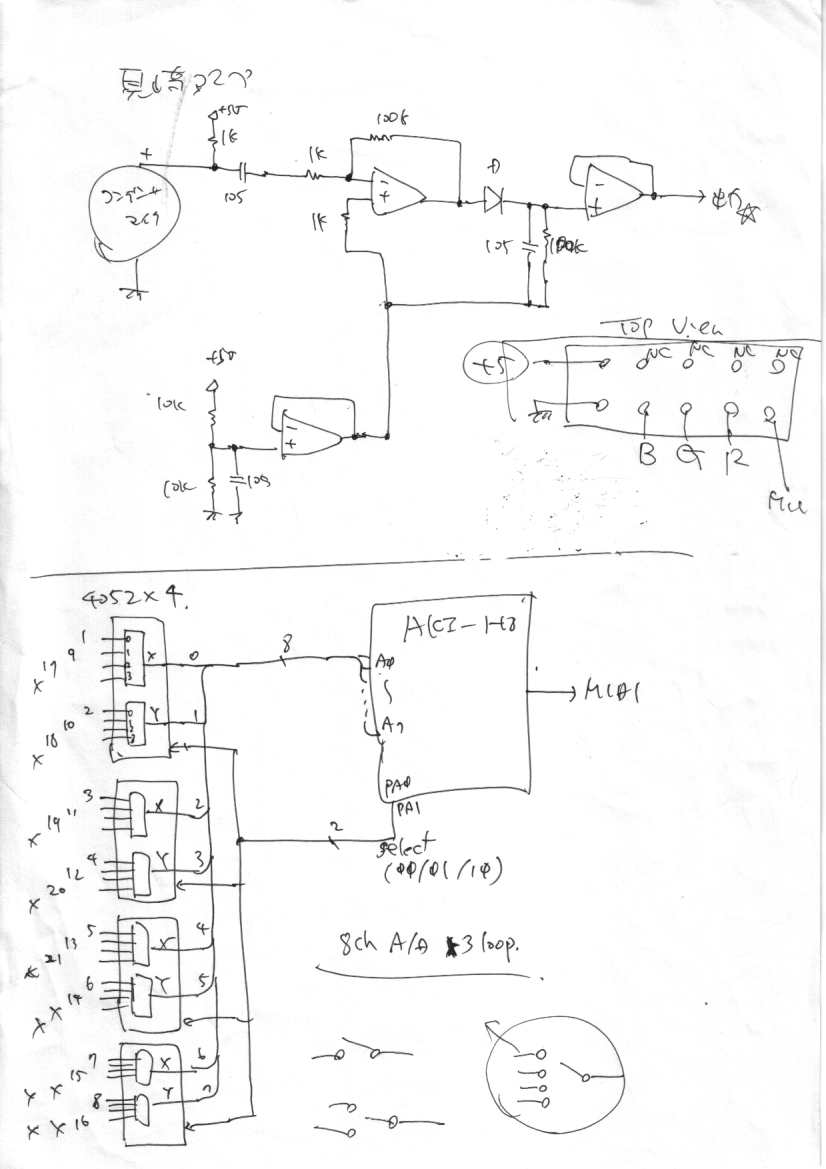 +5V
1K
100k
+
1K
D
105
1K
105
100k
TOP View
+5V
+5
NC NC NC NC
10K
10K
105
B G R
4052×4.
1
9
17
×
0
1
2
3
X
0
8
AKI-H8
A0
A7
→ MIDI
2
10
18
×
Y
1
PA0
PA1
3
11
19
×
X
2
2
select
(00/01/10)
4
12
20
×
Y
3
5
13
21
×
X
4
8ch A/D ×3 loop.
6
14
×
×
Y
5
7
15
×
×
X
6
8
16
×
×
Y
7